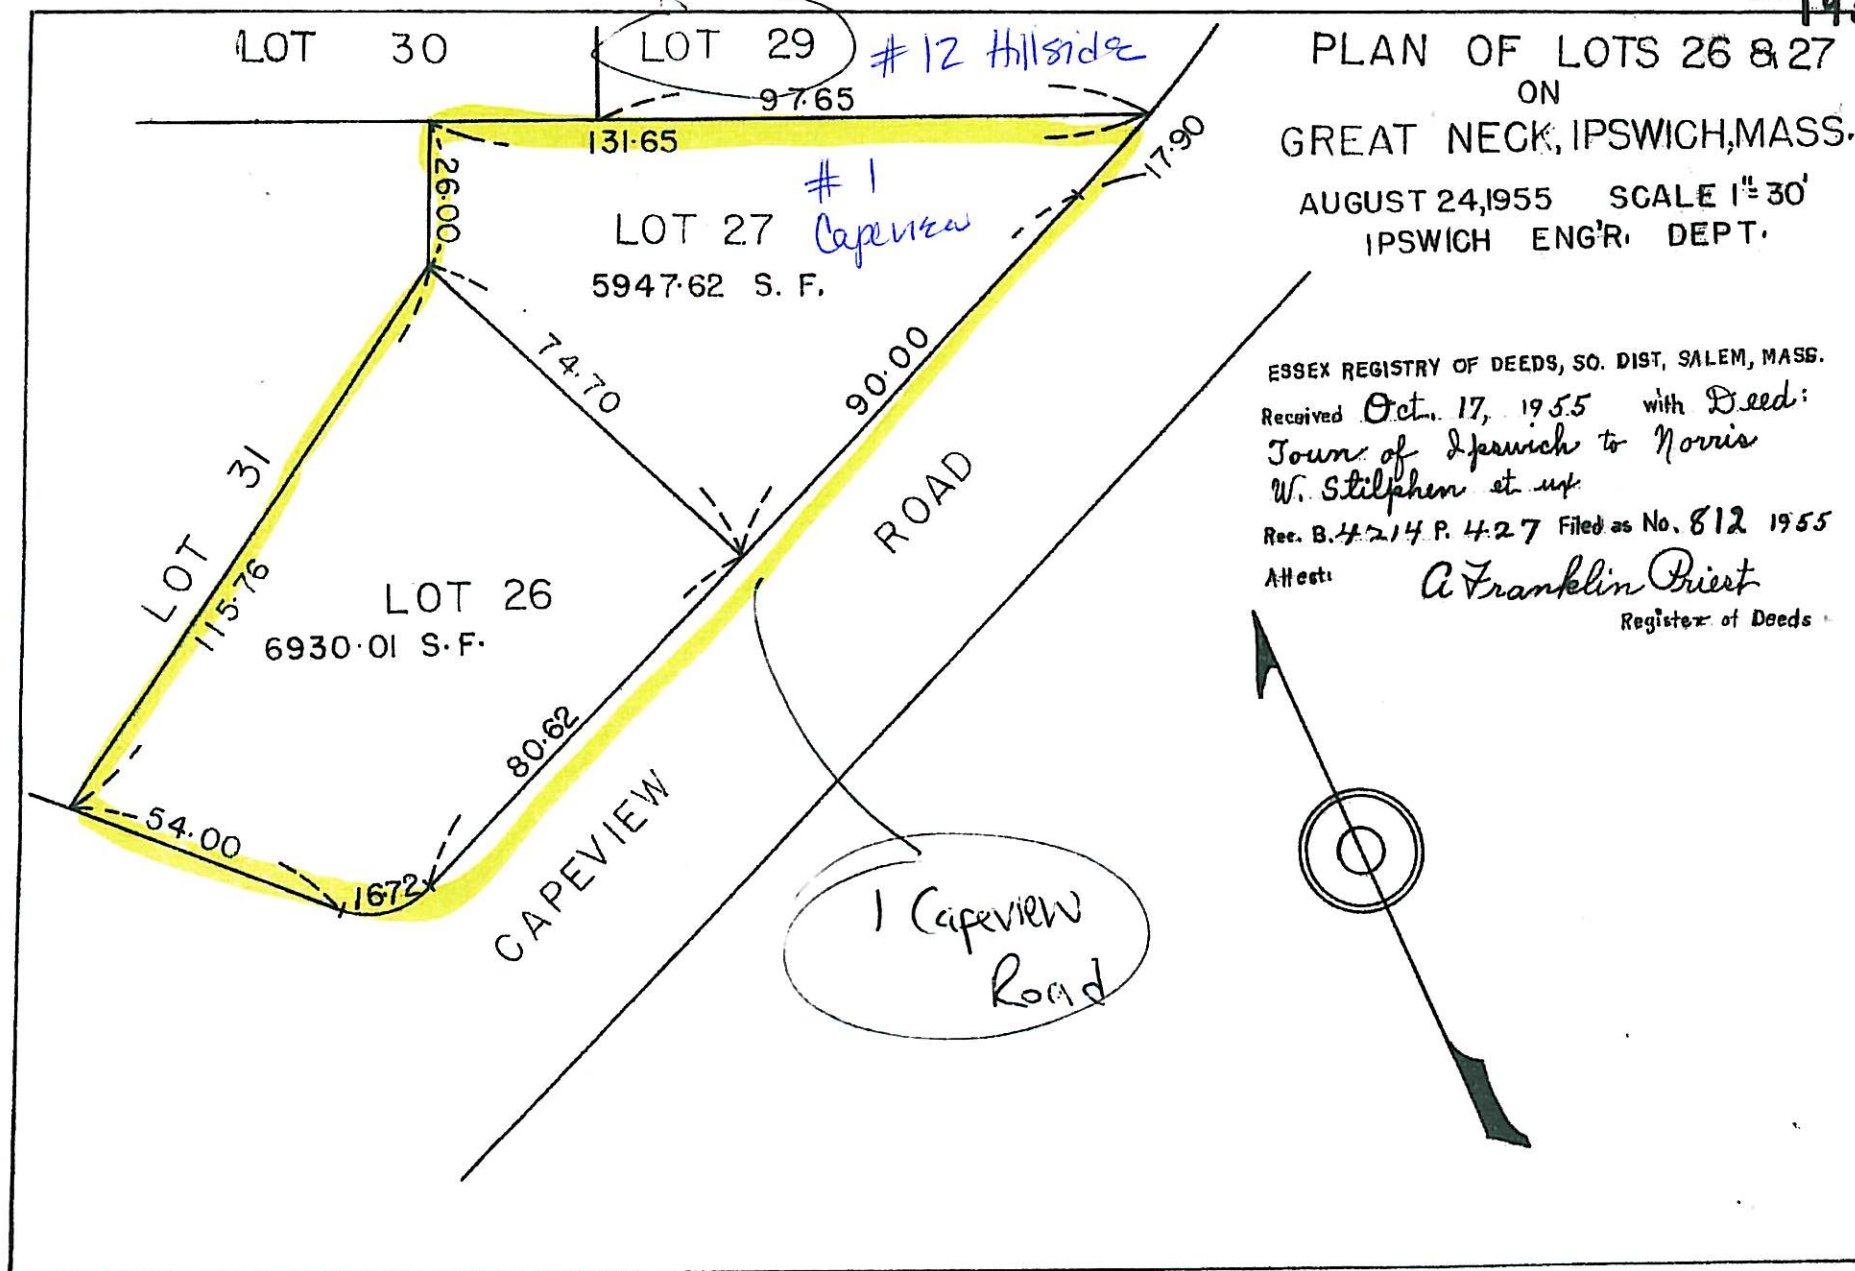 LOT 30
LOT 29
# 12 Hillside
97.65
131.65
26.00
17.90
# 1
Capeview
LOT 27
5947.62 S. F.
74.70
90.00
LOT 31
115.76
LOT 26
6930.01 S.F.
80.62
54.00
16.72
CAPEVIEW ROAD
1 Capeview
Road
PLAN OF LOTS 26 & 27
ON
GREAT NECK, IPSWICH, MASS.
AUGUST 24, 1955 SCALE 1" = 30'
IPSWICH ENG'R. DEPT.
ESSEX REGISTRY OF DEEDS, SO. DIST, SALEM, MASS.
Received Oct. 17, 1955 with Deed:
Town of Ipswich to Norris
W. Stilphen et ux
Rec. B. 4214 P. 427 Filed as No. 812 1955
Attest: A Franklin Priest
Register of Deeds